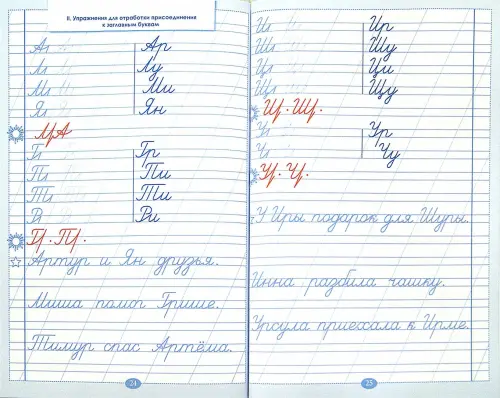 II. Упражнения для отработки присоединения
к заглавным буквам
Аı Ар
Лı Лу
Мı Ми
Яı Ян
МА
Гı Гр
Пı Пи
Тı Ти
Вı Ви
Артур и Ян друзья.
Миша помог Грише.
Тимур спас Артёма.
24
Иı Ир
Шı Шу
Цı Ци
Щı Щу
Уı Ур
Чı Чу
У Иры подарок для Шуры.
Инна разбила чашку.
Урсула приехала к Ирме.
25